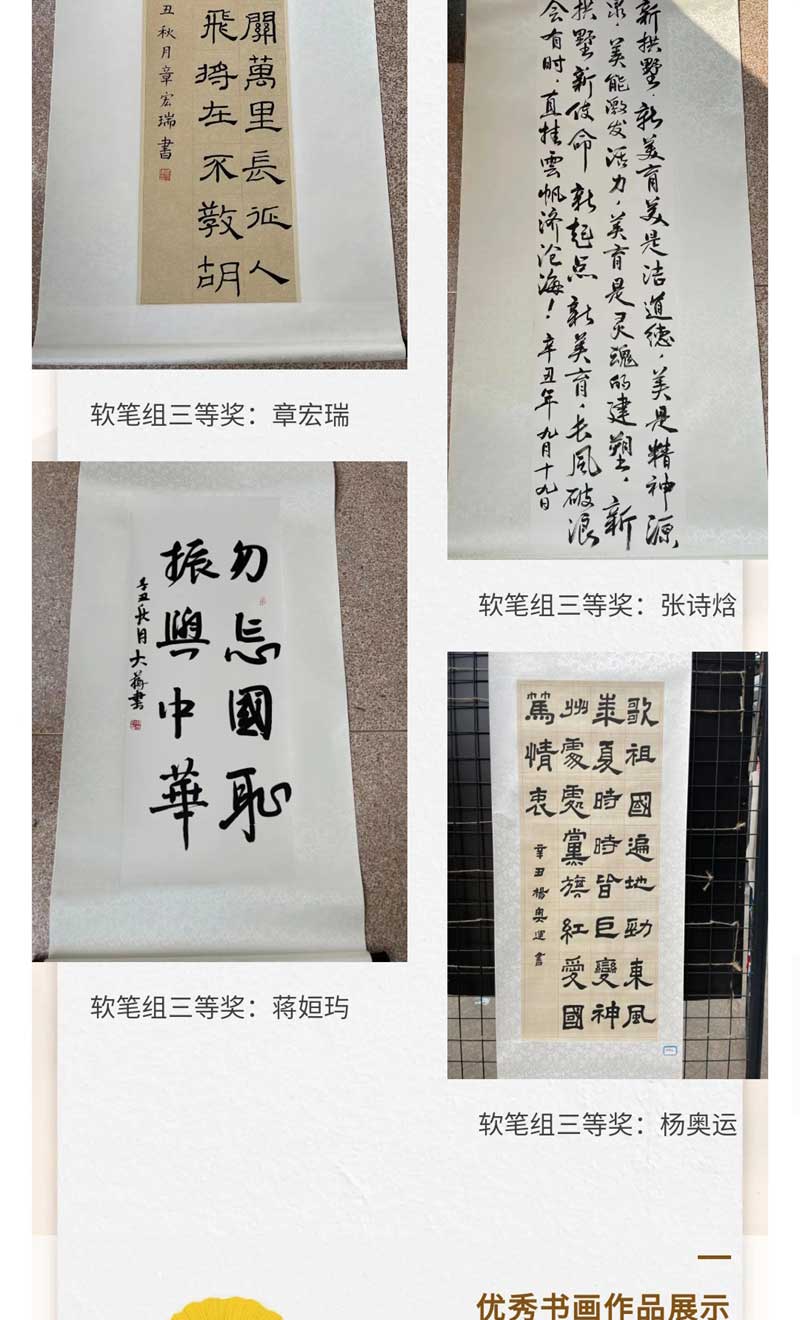 關萬里長征人
飛將在不教胡
丑秋月章宏瑞書
软笔组三等奖：章宏瑞
新拱墅，新美育美是洁道德，美是精神源
泉，美能激发活力，美育是灵魂的建塑，新
拱墅新使命 新起点 新美育，长风破浪
会有时，直挂雲帆济沧海！辛丑年九月十九日
软笔组三等奖：张诗焓
勿忘國恥
振興中華
辛丑秋月大蒋書
软笔组三等奖：蒋姮玙
歌祖國遍地勁東風
華夏時時皆巨變神
州處處黨旗紅愛國
篤情衷
辛丑楊奥運書
软笔组三等奖：杨奥运
优秀书画作品展示